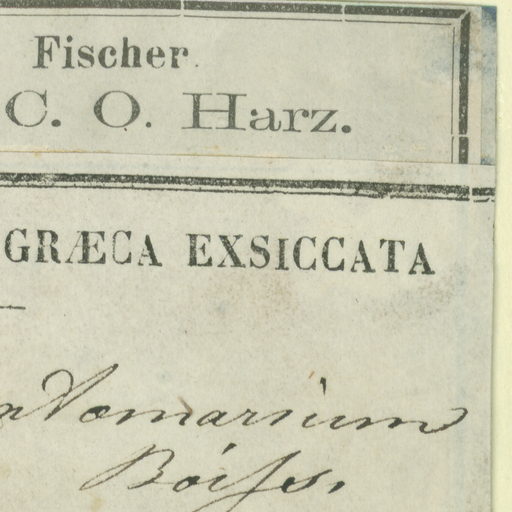 Fischer.
C. O. Harz.
GRÆCA EXSICCATA
Boiss.